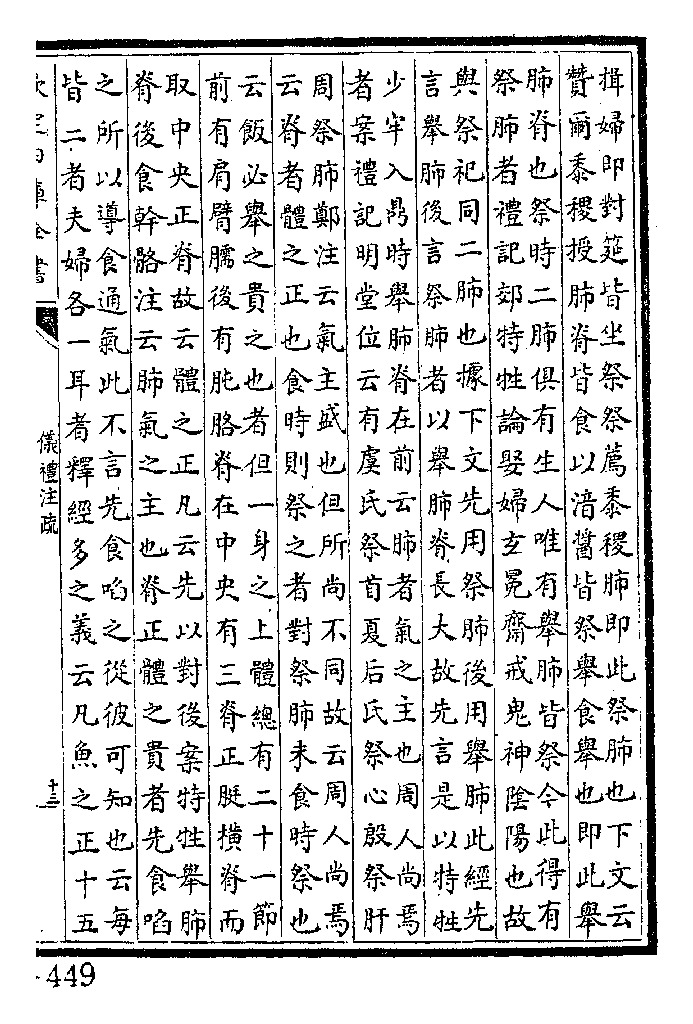 揖婦即對筵皆坐祭祭薦黍稷肺即此祭肺也下文云
贊爾黍稷授肺脊皆食以湆醬皆祭舉食舉也即此舉
肺脊也祭時二肺俱有生人唯有舉肺皆祭今此得有
祭肺者禮記郊特牲論娶婦玄冕齋戒鬼神陰陽也故
與祭祀同二肺也據下文先用祭肺後用舉肺此經先
言舉肺後言祭肺者以舉肺脊長大故先言是以特牲
少牢入鼎時舉肺脊在前云肺者氣之主也周人尚焉
者案禮記明堂位云有虞氏祭首夏后氏祭心殷祭肝
周祭肺鄭注云氣主盛也但所尚不同故云周人尚焉
云脊者體之正也食時則祭之者對祭肺未食時祭也
云飯必舉之貴之也者但一身之上體總有二十一節
前有肩臂臑後有肫胳脊在中央有三脊正脡橫脊而
取中央正脊故云體之正凡云先以對後案特牲舉肺
脊後食幹骼注云肺氣之主也脊正體之貴者先食啗
之所以導食通氣此不言先食啗之從彼可知也云每
皆二者夫婦各一耳者釋經多之義云凡魚之正十五
欽定四庫全書
儀禮注疏
十三
449